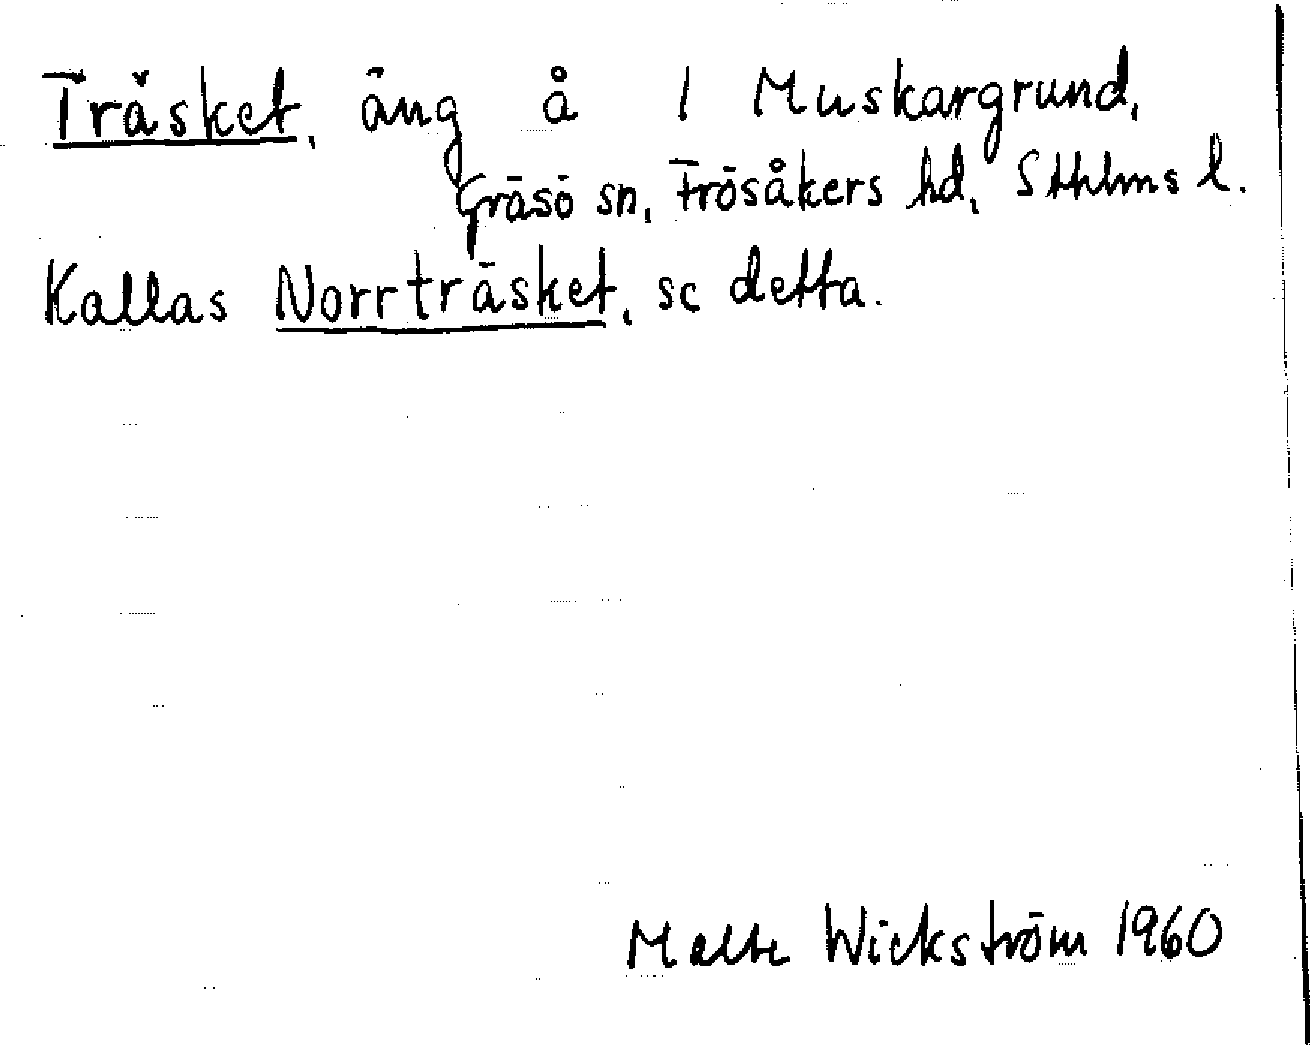 Träsket, äng å 1 Muskargrund,
Gräsö sn, Frösåkers hd, Sthlms l.
Kallas Norrträsket, se detta.
Malte Wickström 1960